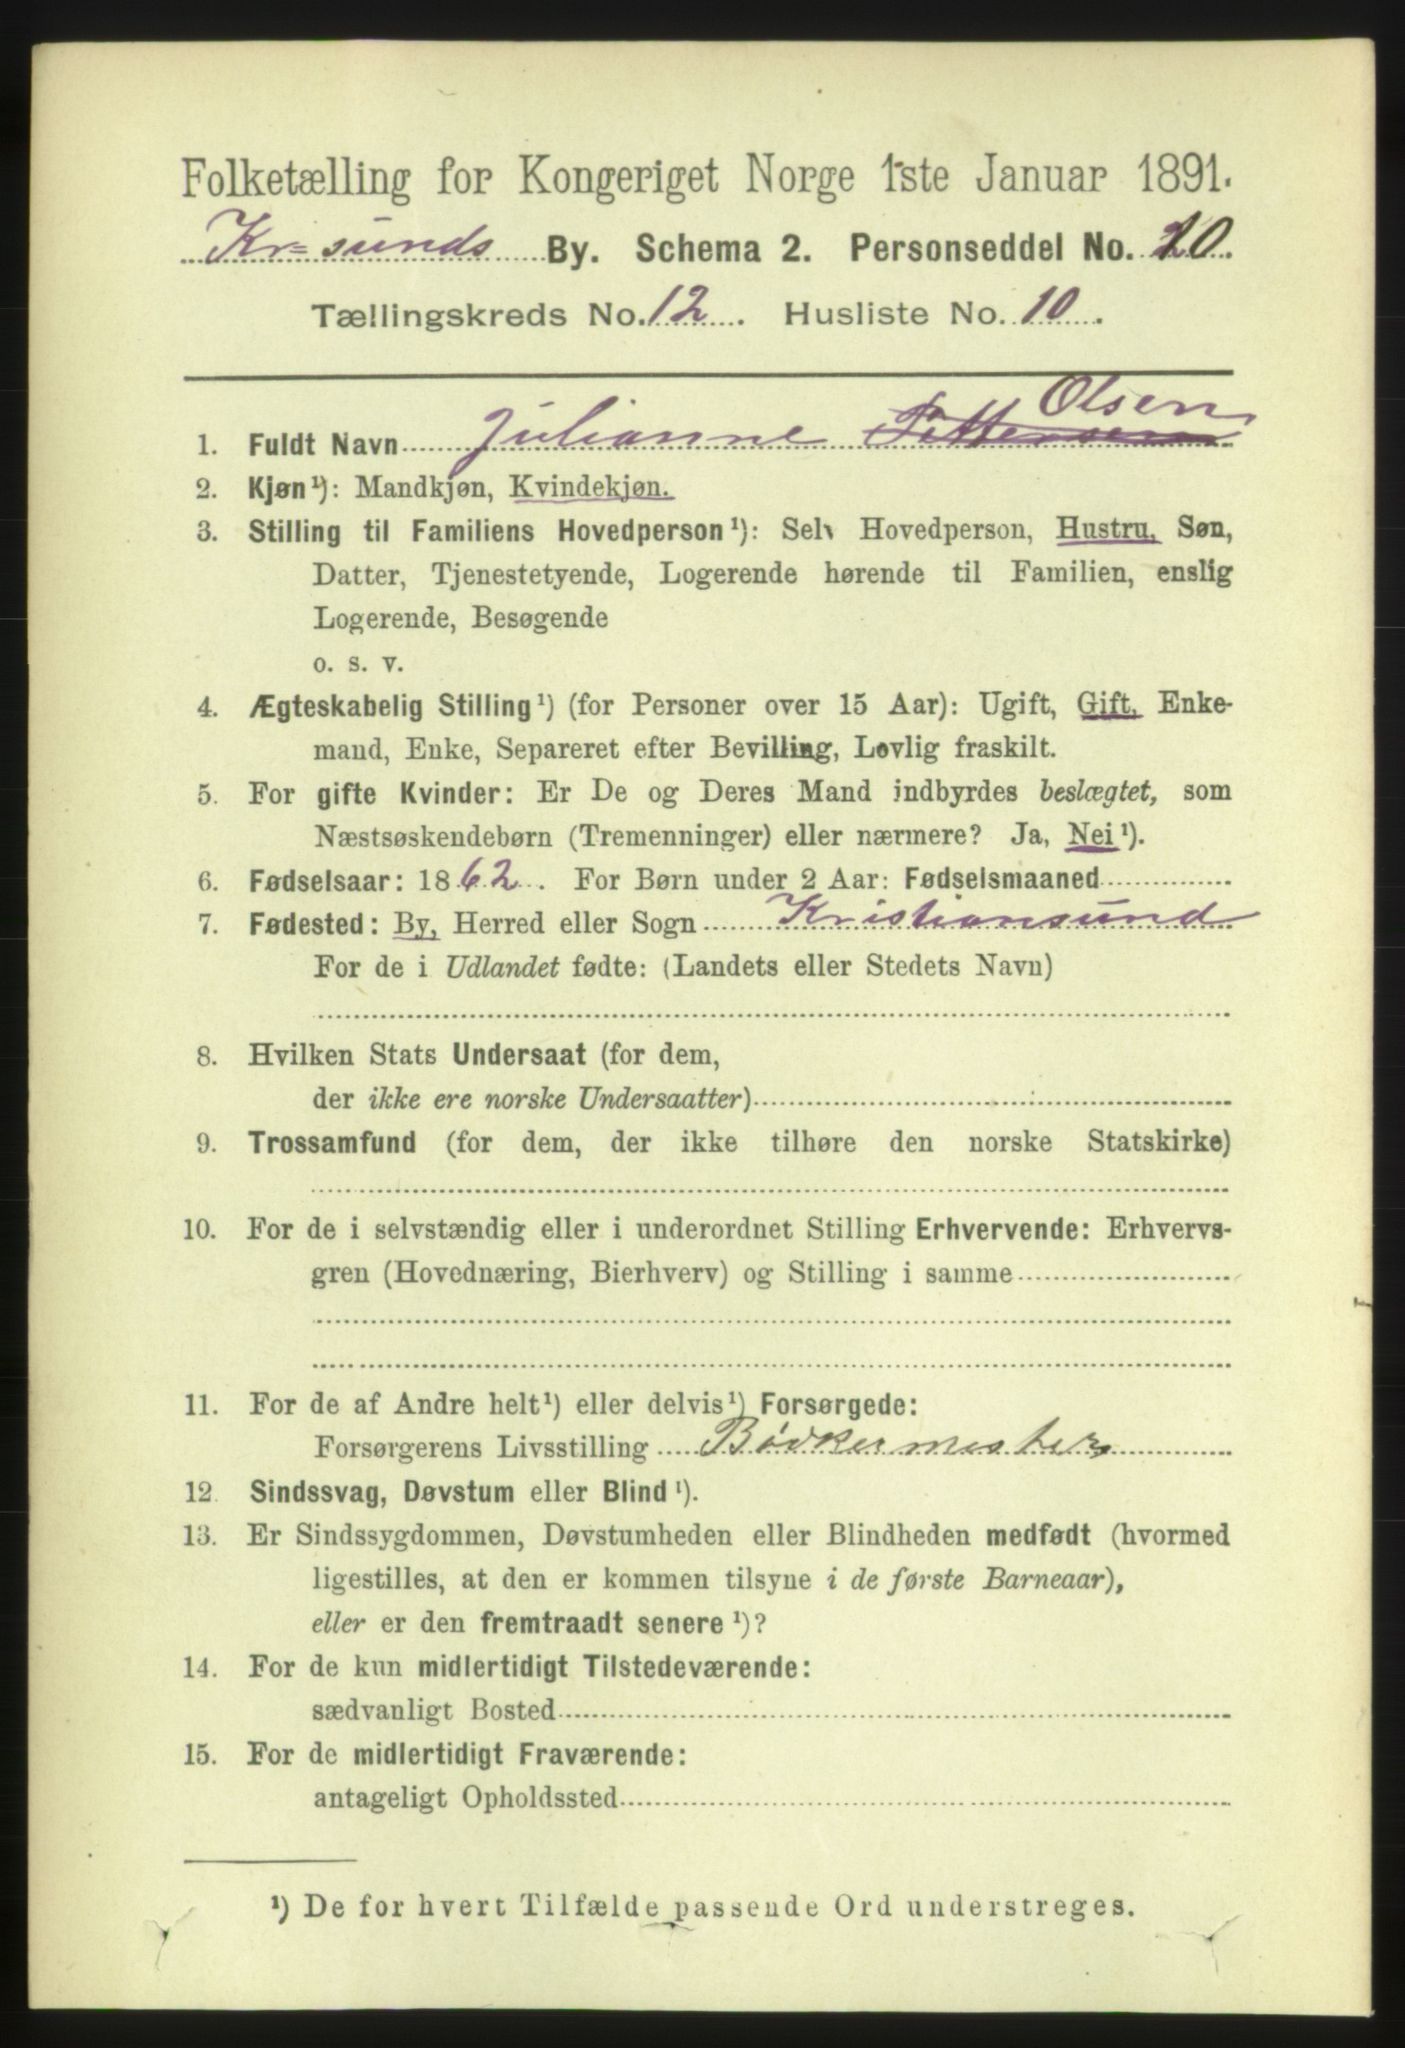 Folketælling for Kongeriget Norge 1ste Januar 1891.
Kr=sunds By. Schema 2. Personseddel No. 20.
Tællingskreds No. 12. Husliste No. 10.
Olsen
1. Fuldt Navn Julianne Pettersen
2. Kjøn¹): Mandkjøn, Kvindekjøn.
3. Stilling til Familiens Hovedperson¹): Selv Hovedperson, Hustru, Søn,
Datter, Tjenestetyende, Logerende hørende til Familien, enslig
Logerende, Besøgende
o. s. v.
4. Ægteskabelig Stilling¹) (for Personer over 15 Aar): Ugift, Gift, Enke-
mand, Enke, Separeret efter Bevilling, Lovlig fraskilt.
5. For gifte Kvinder: Er De og Deres Mand indbyrdes beslægtet, som
Næstsøskendebørn (Tremenninger) eller nærmere? Ja, Nei¹).
6. Fødselsaar: 1862. For Børn under 2 Aar: Fødselsmaaned
7. Fødested: By, Herred eller Sogn Kristiansund
For de i Udlandet fødte: (Landets eller Stedets Navn)
8. Hvilken Stats Undersaat (for dem,
der ikke ere norske Undersaatter)
9. Trossamfund (for dem, der ikke tilhøre den norske Statskirke)
10. For de i selvstændig eller i underordnet Stilling Erhvervende: Erhvervs-
gren (Hovednæring, Bierhverv) og Stilling i samme
11. For de af Andre helt¹) eller delvis¹) Forsørgede:
Forsørgerens Livsstilling Bødkermester
12. Sindssvag, Døvstum eller Blind¹).
13. Er Sindssygdommen, Døvstumheden eller Blindheden medfødt (hvormed
ligestilles, at den er kommen tilsyne i de første Barneaar),
eller er den fremtraadt senere¹)?
14. For de kun midlertidigt Tilstedeværende:
sædvanligt Bosted
15. For de midlertidigt Fraværende:
antageligt Opholdssted
¹) De for hvert Tilfælde passende Ord understreges.